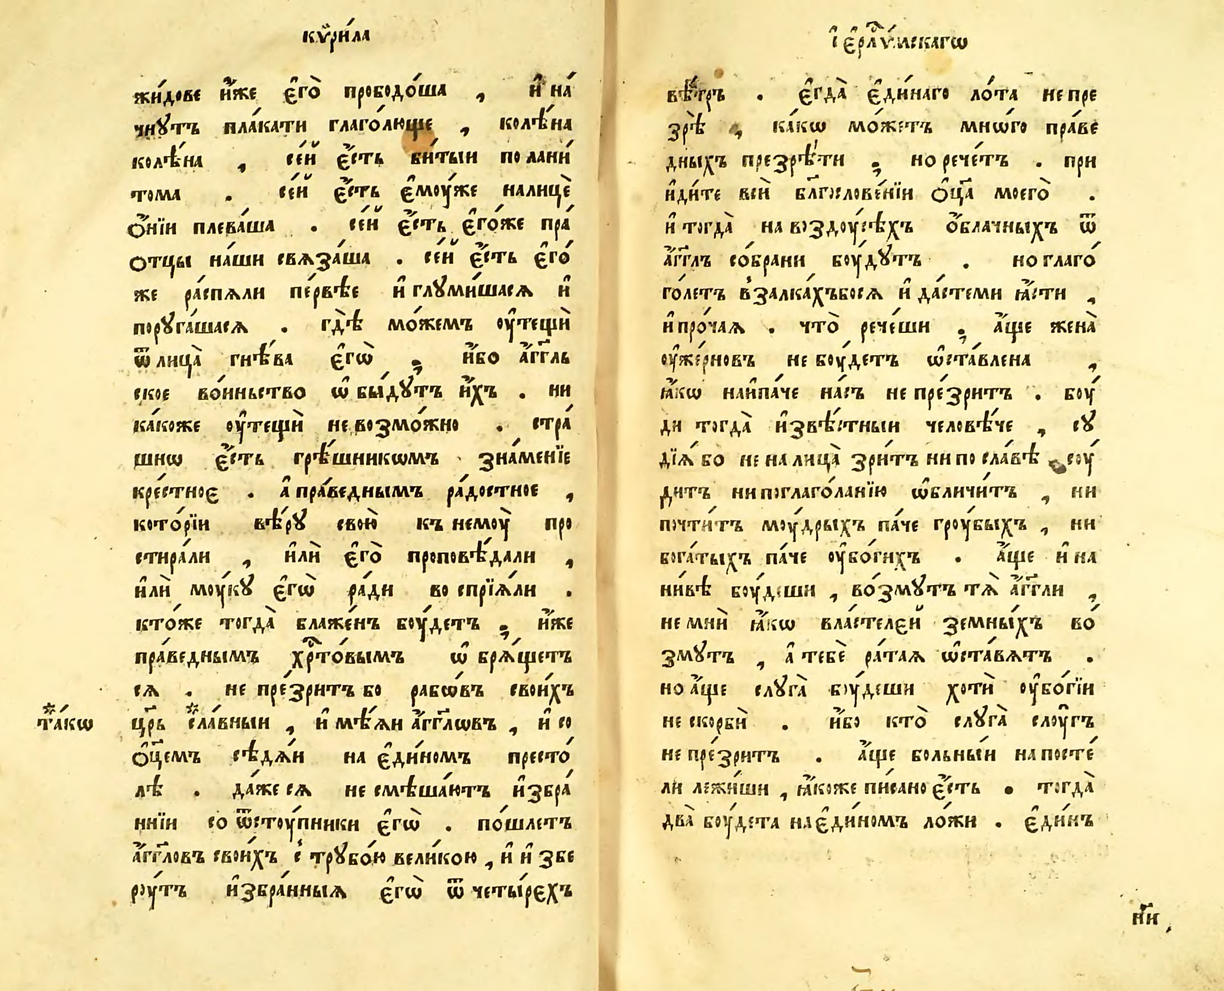 кѷри́ла
жи́дове и҆́же є҆го̀ прободо́ша , и҆ на́
чнꙋтъ пла́кати глаго́люще , колѣ́на
колѣ́на , се́й є҆́сть би́тыи по лани́
тома . се́й є҆́сть є҆моу́же на лицѐ
ѻ҆́нїи плева́ша . се́й є҆́сть є҆го́же пра́
ѻтцы на́ши свѧза́ша . се́й є҆́сть є҆го́
же распѧ́ли пе́рвѣе и҆ глꙋми́шасѧ и҆
порꙋга́шасѧ . гдѣ̀ мо́жемъ оу҆тещѝ
ѿ лица̀ гнѣ́ва є҆гѡ̀ ; и҆́бо а҆́гг҃ль
ское во́иньство ѡ҆бы́дꙋтъ и҆́хъ . ни
ка́коже оу҆тещѝ не возмо́жно . стра́
шнѡ є҆́сть грѣ́шникѡмъ . зна́менїе
кре́стноє . а҆ пра́веднымъ ра́достное ,
кото́рїи вѣ́рꙋ свою̀ къ немоу̀ про
стира́ли , и҆лѝ є҆го̀ проповѣ́дали ,
и҆лѝ моу́кꙋ є҆гѡ̀ ра́ди воспрїѧ́ли .
кто́же тогда̀ блаже́нъ боу́детъ ; и҆́же
пра́веднымъ хрⷭ҇то́вымъ ѡ҆брѧ́щетъ
сѧ . не пре́зритъ бо рабѡ́въ свои́хъ
та́кѡ
цр҃ь сла́вныи , и҆ мѣ́ѧи а҆́гг҃лѡвъ , и҆ со
ѻ҆ц҃е́мъ сѣдѧ́и на є҆ди́номъ престо́
лѣ . да́же сѧ не смѣша́ютъ и҆збра́
ннїи со ѿстоу́пники є҆гѡ̀ . по́шлетъ
а҆́гг҃ловъ свои́хъ с трꙋбо́ю вели́кою , и҆ и҆збе
роу́тъ и҆збра́нныѧ є҆гѡ̀ ѿ четы́рєхъ
і҆єрⷭ҇ли́мскагѡ
вѣ́тръ . є҆гда̀ є҆ди́наго ло́та не пре
зрѣ̀ , ка́кѡ мо́жетъ мнѡ́го пра́ве
дныхъ презрѣ́ти ; но рече́тъ . при
и҆ди́те всѝ бл҃гослове́нїи ѻ҆ц҃а̀ моего̀ .
и҆ тогда̀ на воздоу́сѣхъ ѻ҆́блачныхъ ѿ
а҆́гг҃лъ со́брани боу́дꙋтъ . но глаго́
голетъ взалка́хъ бо сѧ и҆ да́сте ми ꙗ҆́сти ,
и҆ про́чаѧ . что̀ рече́ши ; а҆́ще жена̀
оу҆же́рновъ не боу́детъ ѡ҆ста́влена ,
ꙗ҆́кѡ наипа́че на́съ не пре́зритъ . боу́
ди тогда̀ и҆звѣ́стныи человѣ́че , сꙋ
дїѧ́ бо не на лица̀ зри́тъ ни по сла́вѣ , соу́
дитъ ни по глаго́ланїю ѡ҆бличи́тъ , ни
почти́тъ моу́дрыхъ па́че гроу́быхъ , ни
бога́тыхъ па́че оу҆бо́гихъ . а҆́ще и҆ на
ни́вѣ боу́деши , во́змꙋтъ тѧ̀ а҆́гг҃ли ,
не мнѝ ꙗ҆́кѡ власте́лєй зе́мныхъ во́
змꙋтъ , а҆ тебѐ ра́таѧ ѡ҆ста́вѧтъ .
но а҆́ще слꙋга̀ боу́деши хотѝ оу҆бо́гїи
не скорбѝ . и҆́бо кто̀ слꙋга̀ слоу́гъ
не пре́зритъ . а҆́ще больны́и на посте́
ли лежи́ши , ꙗ҆́коже пи́сано є҆́сть . тогда̀
два̀ боу́дета на є҆ди́ном ло́жи . є҆ди́нъ